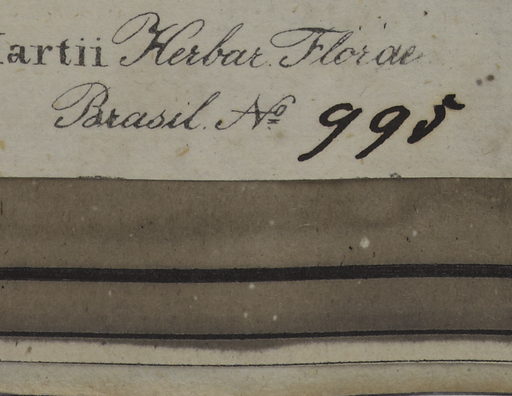 artii Herbar. Florae
Brasil. No 995